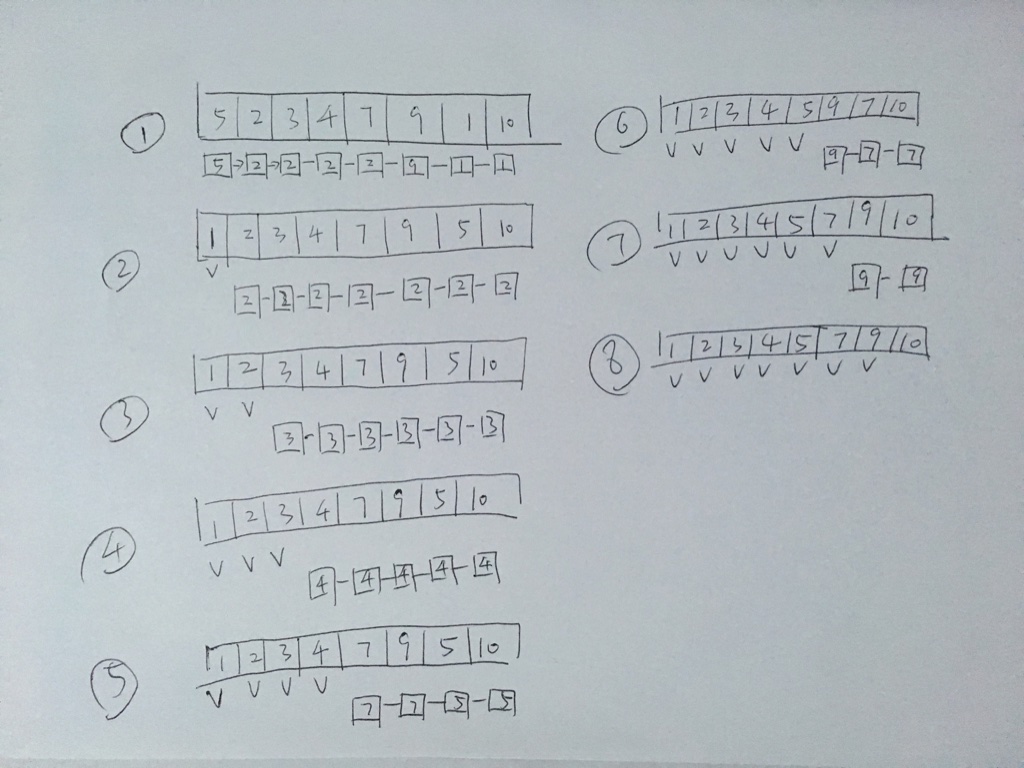 ① 5 2 3 4 7 9 1 10
5 → 2 → 2 - 2 - 2 - 9 - 1 - 1
② 1 2 3 4 7 9 5 10
v
2 - 2 - 2 - 2 - 2 - 2 - 2
③ 1 2 3 4 7 9 5 10
v v
3 - 3 - 3 - 3 - 3 - 3
④ 1 2 3 4 7 9 5 10
v v v
4 - 4 - 4 - 4 - 4
⑤ 1 2 3 4 7 9 5 10
v v v v
7 - 7 - 5 - 5
⑥ 1 2 3 4 5 9 7 10
v v v v v
9 - 7 - 7
⑦ 1 2 3 4 5 7 9 10
v v v v v v
9 - 9
⑧ 1 2 3 4 5 7 9 10
v v v v v v v